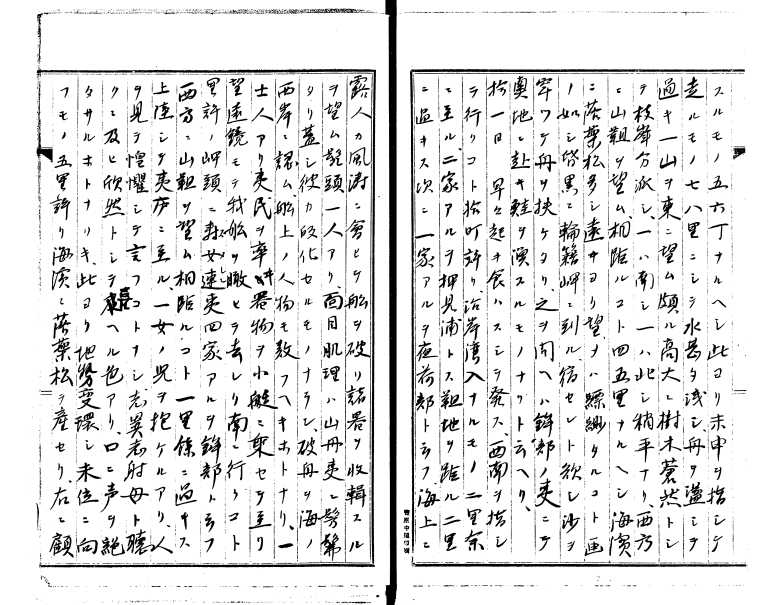 スルモノ五六丁ナルヘシ此ヨリ未申ヲ指シテ
走ルモノ七八里ニシテ水甚タ浅シ舟ヲ盪シテ
過キ一山ヲ東ニ望ム頗ル高大ニ樹木蒼然トシ
テ枝峯分派シ一ハ南シ一ハ此シ稍平ナリ西方
ニ山靼ヲ望ム相距ルコト四五里ナルヘシ海濱
ニ落葉松多シ遠キヨリ望メハ縹緲タルコト画
ノ如シ昏黒ニ輪籍岬ニ到ル宿セント欲シ沙ヲ
穿ツテ舟ヲ挾ケタリ之ヲ問ヘハ鉾部ノ夷ニテ
奥地ニ赴キ鮭ヲ漁スルモノナリト云ヘリ
拾一日 早々起キ食ハスシテ発ス西南ヲ指シ
テ行クコト拾町許リ沿岸湾入ナルモノ二里余
ニ至ル二家アルヲ押見浦トス靼地ヲ距ル二里
ニ過キス次ニ一家アルヲ夜荷部ト云フ海上ニ
露人カ風濤ニ會ヒテ船ヲ破リ諸器ヲ收輯スル
ヲ望ム髭頭一人アリ面目肌理ハ山丹夷ニ髣髴
タリ蓋シ彼カ皎化セルモノナラン破舟ヲ海ノ
西岸ニ認ム船上ノ人物モ数フヘキホトナリ一
士人アリ夷民ヲ率ヰ器物ヲ小艇ニ乗セテ至リ
望遠鏡モテ我船ヲ瞰ヒテ去レリ南ニ行クコト
里許ノ岬頭ニ
西方ニ山靼ヲ望ム相距ルコト一里餘ニ過キス
上陸シテ夷市ニ至ル一女ノ児ヲ抱ケルアリ人
ヲ見テ惶懼シテ言フコトナシ志異志耐母ト聴
クニ及ヒ欣然トシテ
タサルホトナリキ此ヨリ地勢変環シ未位ニ向
フモノ五里許リ海濱ニ落葉松ヲ産セリ右ニ顧